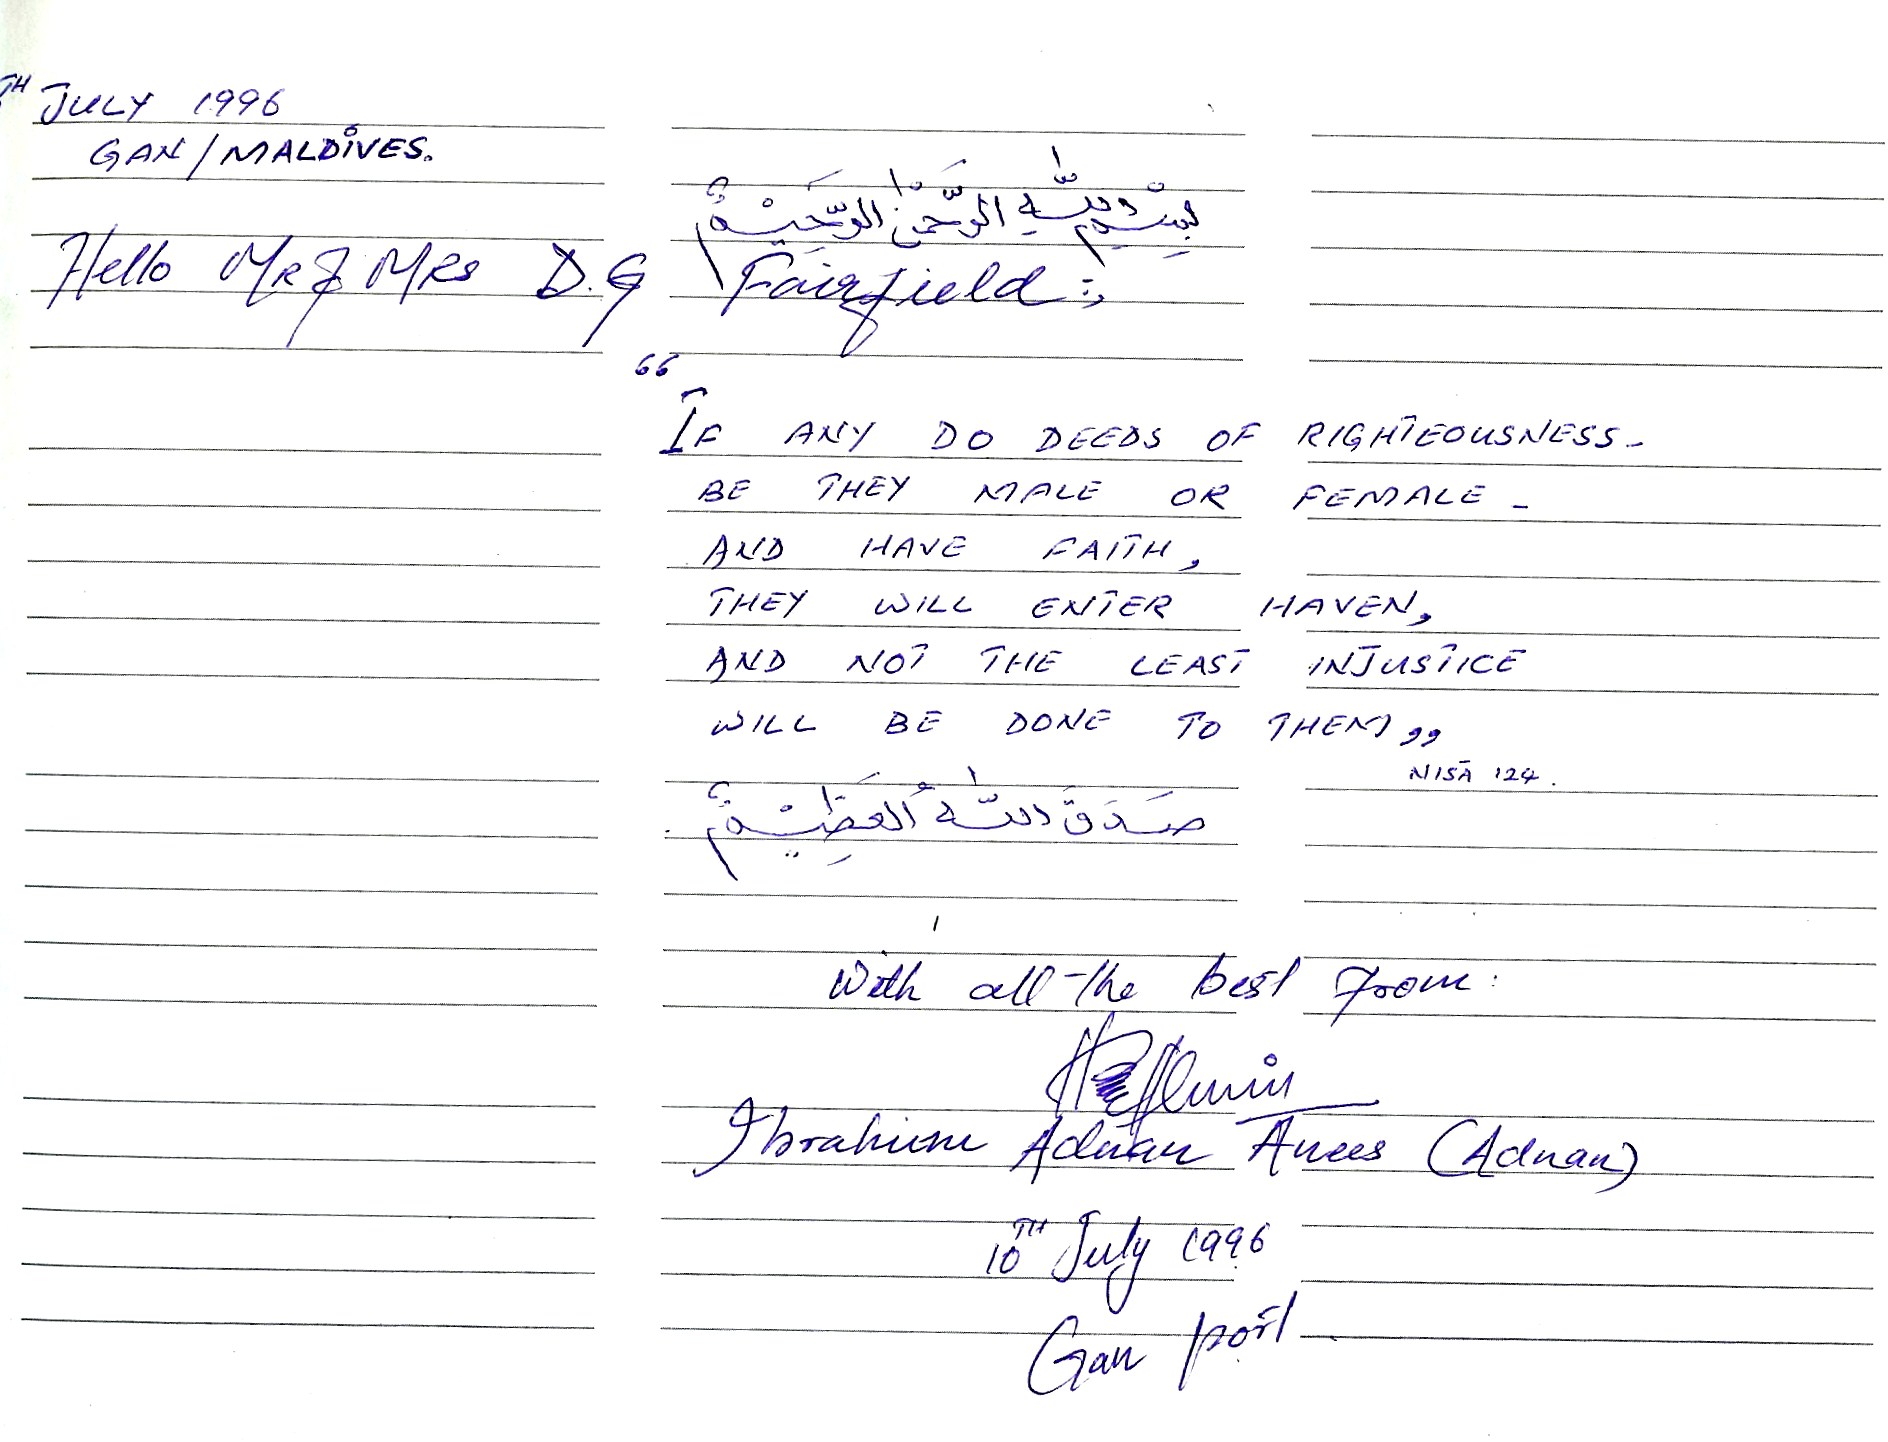 TH JULY 1996
GAN/MALDIVES.
بِسْمِ اللَّهِ الرَّحْمَٰنِ الرَّحِيْمِ
Hello Mr & Mrs D.G Fairfield :,
“IF ANY DO DEEDS OF RIGHTEOUSNESS -
BE THEY MALE OR FEMALE -
AND HAVE FAITH,
THEY WILL ENTER HAVEN,
AND NOT THE LEAST INJUSTICE
WILL BE DONE TO THEM”
NISA 124.
صَدَقَ اللَّهُ العَظِيْمُ
With all the best from:
Ibrahim Adnan Anees (Adnan)
10TH July 1996
Gan port